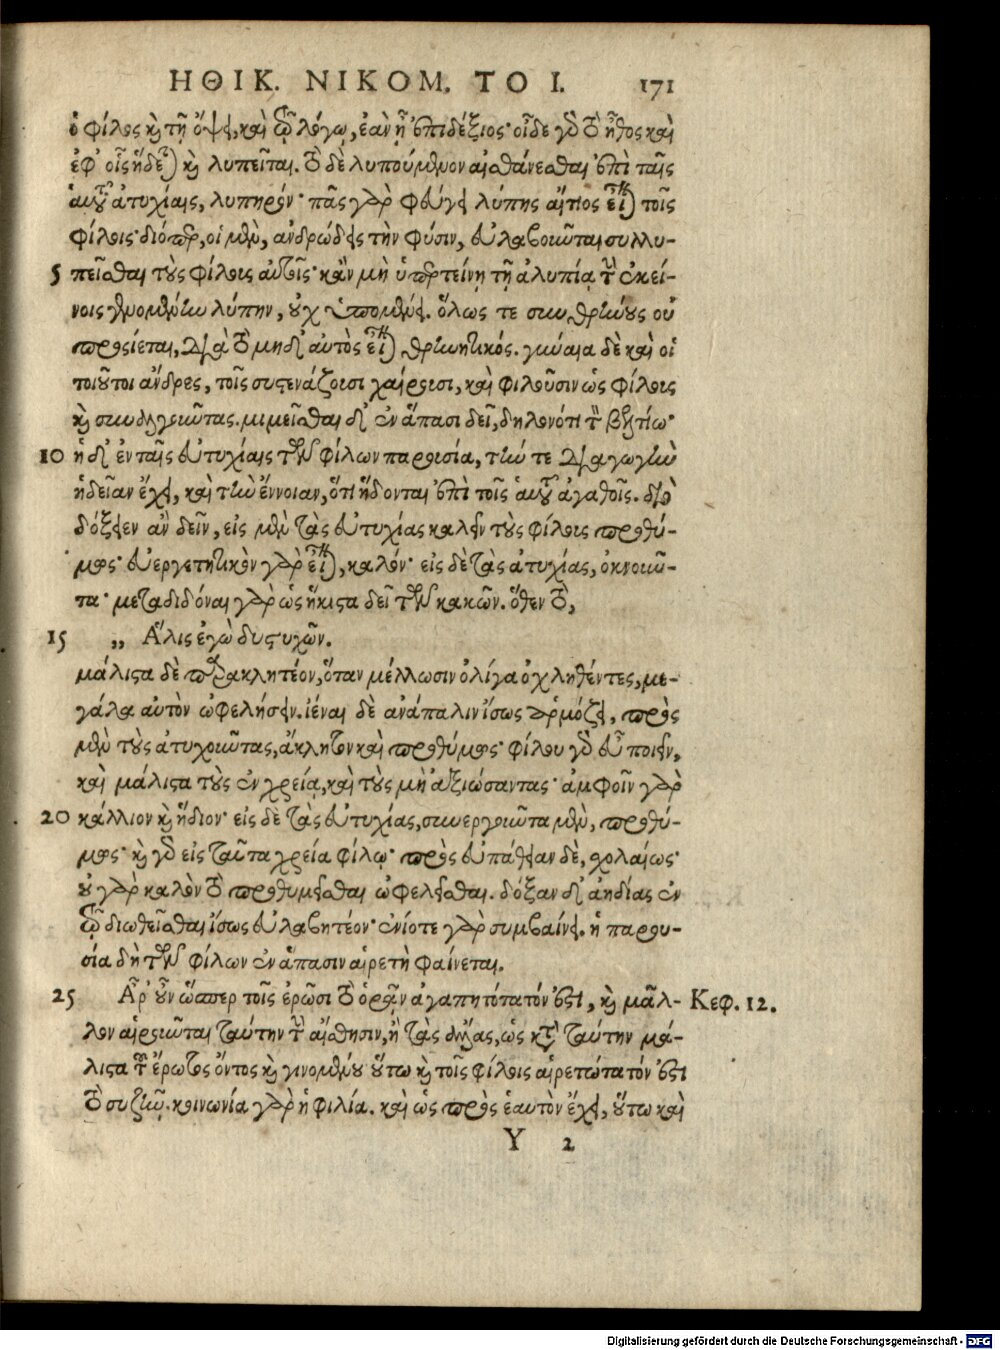 ΗΘΙΚ. ΝΙΚΟΜ. ΤΟ Ι. 171
ὁ φίλος καὶ τῇ ὄψει, καὶ τῷ λόγῳ, ἐὰν ᾖ ἐπιδέξιος· οἶδε γὰρ τὸ ἦθος καὶ
ἐφ' οἷς ἥδεται καὶ λυπεῖται. τὸ δὲ λυπούμενον αἰσθάνεσθαι ἐπὶ ταῖς
αὑτοῦ ἀτυχίαις, λυπηρόν· πᾶς γὰρ φεύγει λύπης αἴτιος εἶναι τοῖς
φίλοις· διόπερ, οἱ μὲν, ἀνδρώδεις τὴν φύσιν, εὐλαβοῦνται συλλυ-
5 πεῖσθαι τοὺς φίλους αὐτοῖς· κἂν μὴ ὑπερτείνῃ τῇ ἀλυπίᾳ τὴν ἐκεί-
νοις γινομένην λύπην, οὐχ ὑπομένει. ὅλως τε συνθρήνους οὐ
προσίεται, διὰ τὸ μηδ' αὐτὸς εἶναι θρηνητικός. γύναια δὲ καὶ οἱ
τοιοῦτοι ἄνδρες, τοῖς συστενάζουσι χαίρουσι, καὶ φιλοῦσιν ὡς φίλους
καὶ συναλγοῦντας. μιμεῖσθαι δ' ἐν ἅπασι δεῖ, δηλονότι τὸν βελτίω·
10 ἡ δ' ἐν ταῖς εὐτυχίαις τῶν φίλων παρουσία, τήν τε διαγωγὴν
ἡδεῖαν ἔχει, καὶ τὴν ἔννοιαν, ὅτι ἥδονται ἐπὶ τοῖς αὑτοῦ ἀγαθοῖς. διὸ
δόξειεν ἂν δεῖν, εἰς μὲν τὰς εὐτυχίας καλεῖν τοὺς φίλους προθύ-
μως· εὐεργετητικὸν γὰρ εἶναι, καλόν· εἰς δὲ τὰς ἀτυχίας, ὀκνοῦν-
τα· μεταδιδόναι γὰρ ὡς ἥκιστα δεῖ τῶν κακῶν. ὅθεν τὸ,
15 „ Ἅλις ἐγὼ δυστυχῶν.
μάλιστα δὲ παρακλητέον, ὅταν μέλλωσιν ὀλίγα ὀχληθέντες, με-
γάλα αὐτὸν ὠφελήσειν. ἰέναι δὲ ἀνάπαλιν ἴσως ἁρμόζει, πρὸς
μὲν τοὺς ἀτυχοῦντας, ἄκλητον καὶ προθύμως· φίλου γὰρ εὖ ποιεῖν,
καὶ μάλιστα τοὺς ἐν χρείᾳ, καὶ τοὺς μὴ ἀξιώσαντας· ἀμφοῖν γὰρ
20 κάλλιον καὶ ἥδιον· εἰς δὲ τὰς εὐτυχίας, συνεργοῦντα μὲν, προθύ-
μως· καὶ γὰρ εἰς ταῦτα χρεία φίλῳ· πρὸς εὐπάθειαν δὲ, σχολαίως·
οὐ γὰρ καλὸν τὸ προθυμεῖσθαι ὠφελεῖσθαι. δόξαν δ' ἀηδίας ἐν
τῷ διωθεῖσθαι ἴσως εὐλαβητέον· ἐνίοτε γὰρ συμβαίνει. ἡ παρου-
σία δὴ τῶν φίλων ἐν ἅπασιν αἱρετὴ φαίνεται.
25 Ἆρ' οὖν ὥσπερ τοῖς ἐρῶσι τὸ ὁρᾷν ἀγαπητότατόν ἐστι, καὶ μᾶλ- Κεφ. 12.
λον αἱροῦνται ταύτην τὴν αἴσθησιν, ἢ τὰς ἄλλας, ὡς κατὰ ταύτην μά-
λιστα τοῦ ἔρωτος ὄντος καὶ γινομένου οὕτω καὶ τοῖς φίλοις αἱρετώτατόν ἐστι
τὸ συζῆν. κοινωνία γὰρ ἡ φιλία. καὶ ὡς πρὸς ἑαυτὸν ἔχει, οὕτω καὶ
Υ 2
Digitalisierung gefördert durch die Deutsche Forschungsgemeinschaft - DFG